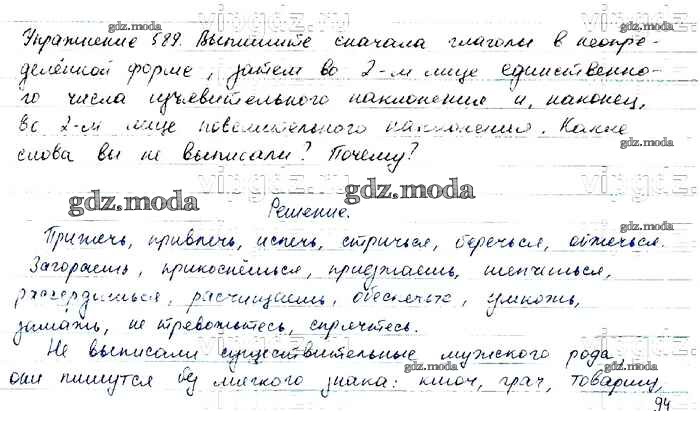 Упражнение 589. Выпишите сначала глаголы в неопре-
делённой форме, затем во 2-м лице единственно-
го числа изъявительного наклонения и, наконец,
во 2-м лице повелительного наклонения. Какие
слова вы не выписали? Почему?
gdz.moda
Решение.
Прижечь, привлечь, испечь, стричься, беречься, обжечься.
Загораешь, прикоснёшься, приезжаешь,
расчищаешь, умножь,
не тревожьтесь, спрячьтесь.
Не выписали существительные мужского рода,
они пишутся без мягкого знака: ключ, грач, товарищ,
94